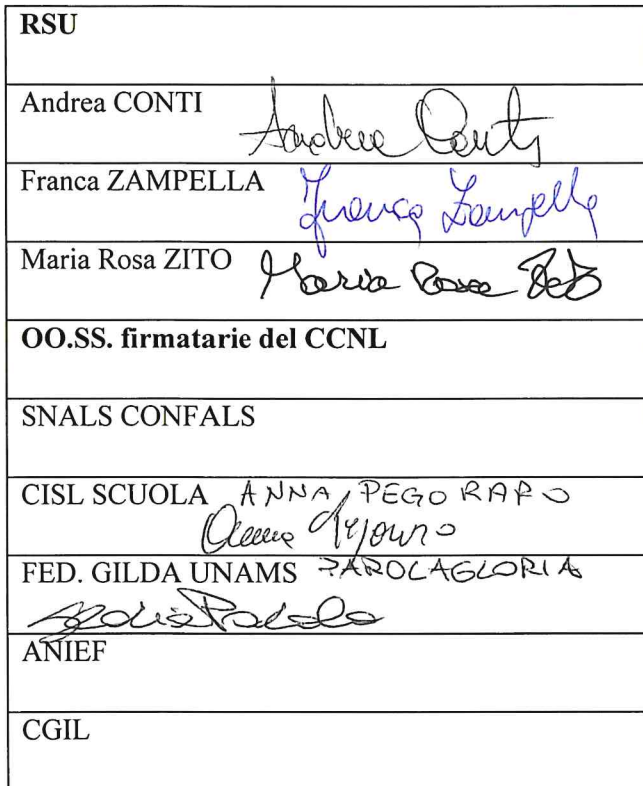 RSU
Andrea CONTI
Andrea Conti
Franca ZAMPELLA
Franca Zampella
Maria Rosa ZITO
Maria Rosa Zito
OO.SS. firmatarie del CCNL
SNALS CONFALS
CISL SCUOLA ANNA PEGORARO
Anna Pegoraro
FED. GILDA UNAMS PAROLAGLORIA
Gloria Parola
ANIEF
CGIL